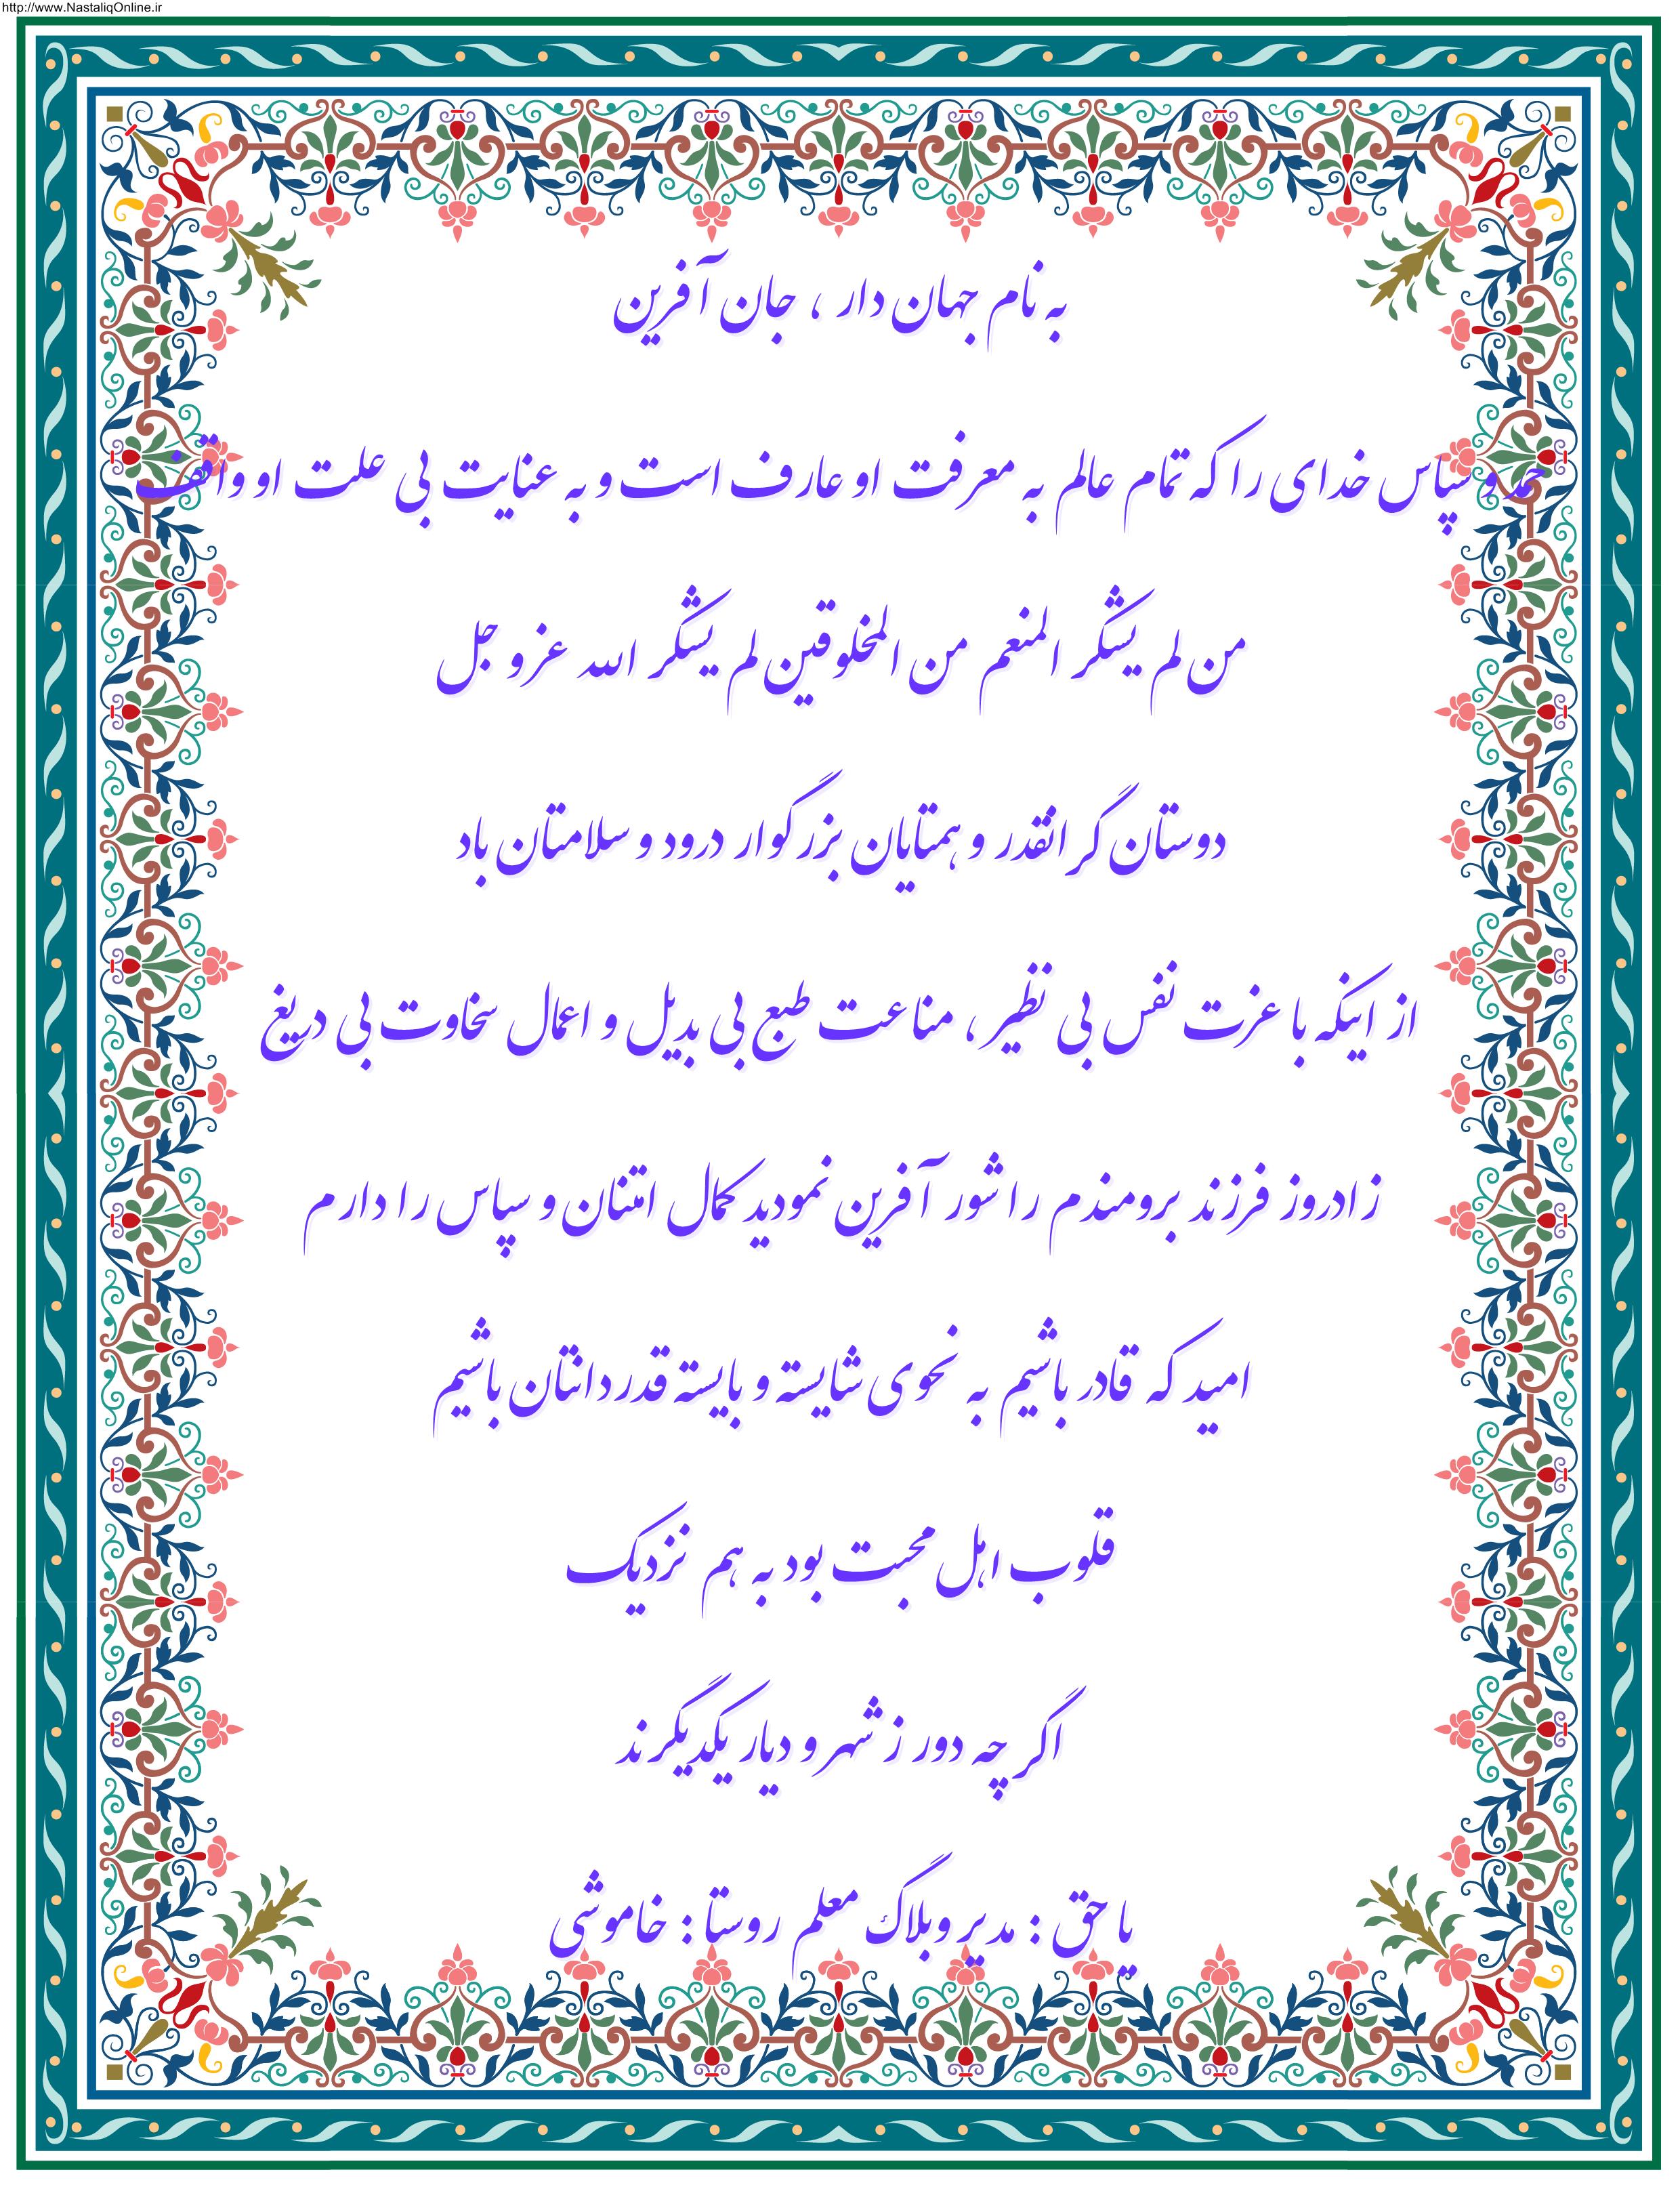 http://www.NastaliqOnline.ir
به نام جهان دار ، جان آفرین
حمد و سپاس خدای را که تمام عالم به معرفت او عارف است و به عنایت بی علت او واقف
من لم یشکر المنعم من المخلوقین لم یشکر الله عز و جل
دوستان گرانقدر و همتایان بزرگوار درود و سلامتان باد
از اینکه با عزت نفس بی نظیر ، مناعت طبع بی بدیل و اعمال سخاوت بی دریغ
زادروز فرزند برومندم را شور آفرین نمودید کمال امتنان و سپاس را دارم
امید که قادر باشیم به نحوی شایسته و بایسته قدردانتان باشیم
قلوب اهل محبت بود به هم نزدیک
اگر چه دور ز شهر و دیار یکدیگرند
یا حق : مدیر وبلاگ معلم روستا : خاموشی